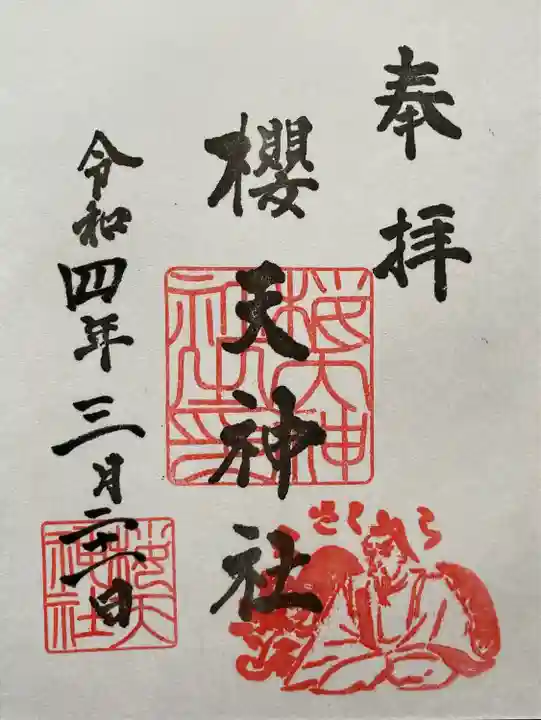 奉拝
櫻天神社
令和四年三月二十一日
桜天神社印
さくら
桜天神社